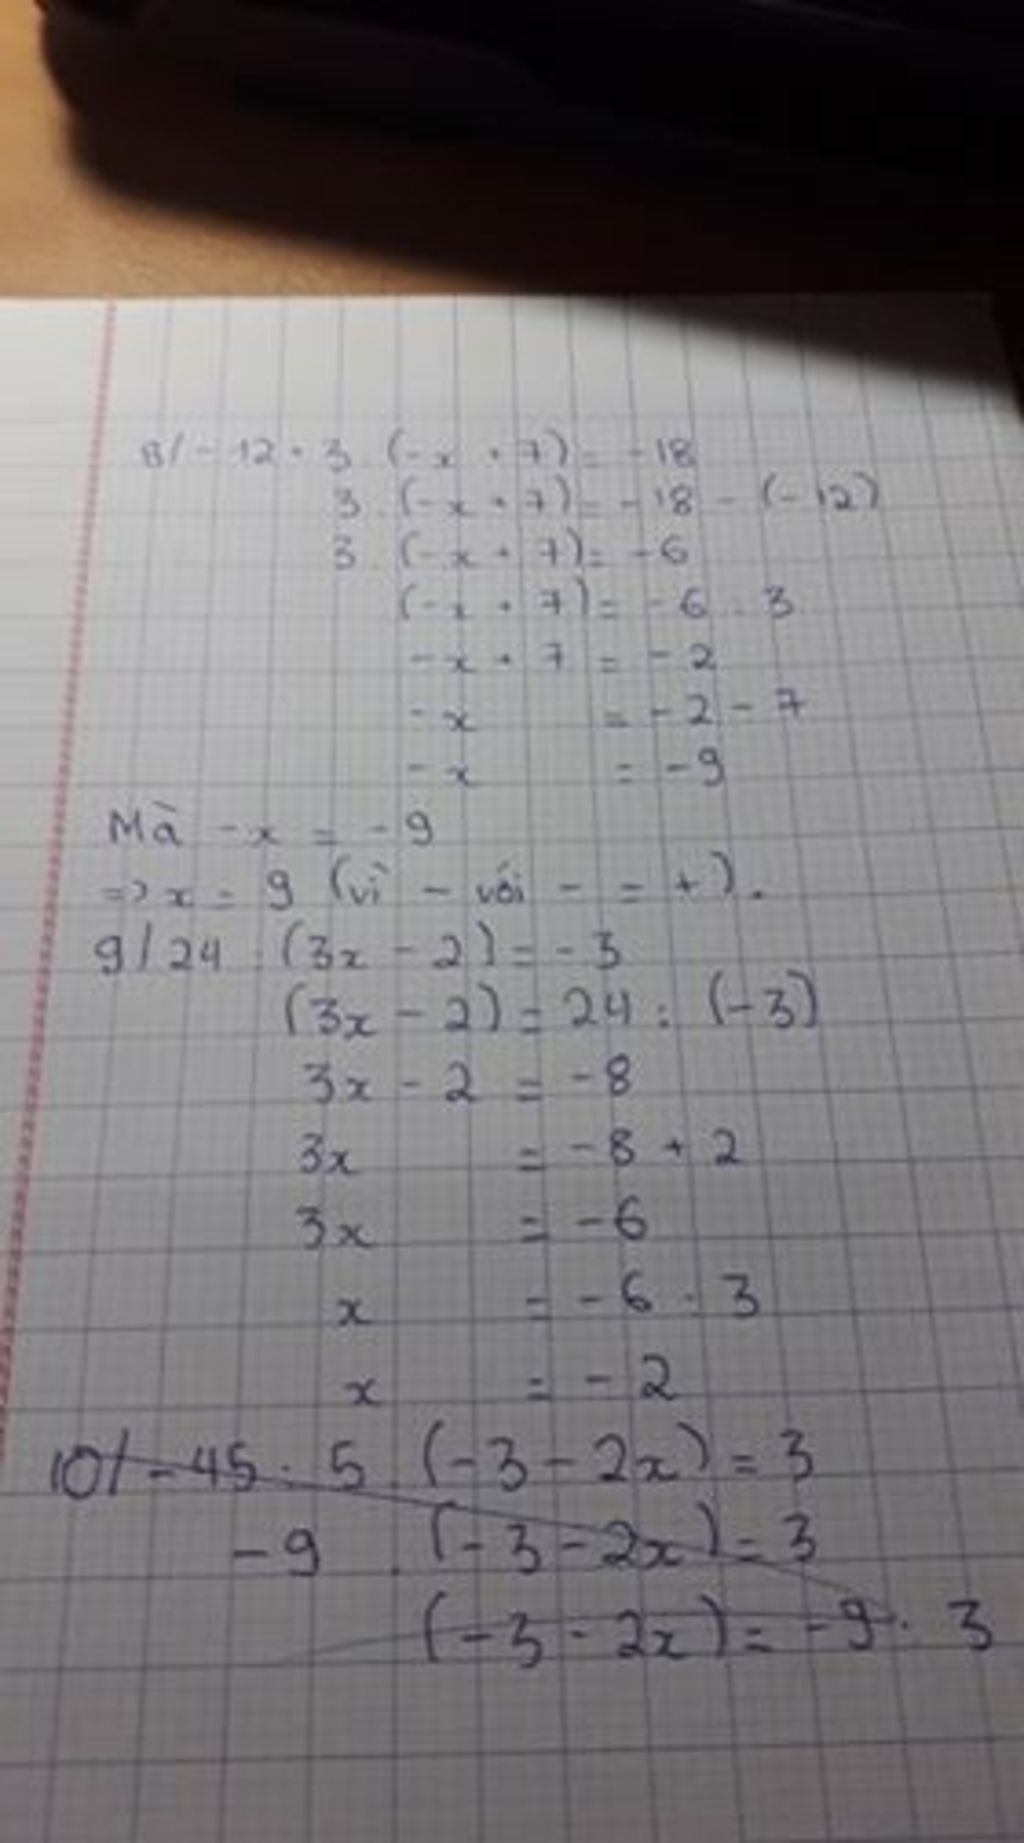 8/ - 12 + 3 . (-x + 7) = -18
3 . (-x + 7) = -18 - (-12)
3 . (-x + 7) = -6
(-x + 7) = -6 : 3
-x + 7 = -2
-x = -2 - 7
-x = -9
Mà -x = -9
=> x = 9 (vì - với - = +).
9/ 24 : (3x - 2) = -3
(3x - 2) = 24 : (-3)
3x - 2 = -8
3x = -8 + 2
3x = -6
x = -6 : 3
x = -2
10/ -45 : 5 . (-3 - 2x) = 3
-9 . (-3 - 2x) = 3
(-3 - 2x) = -9 . 3